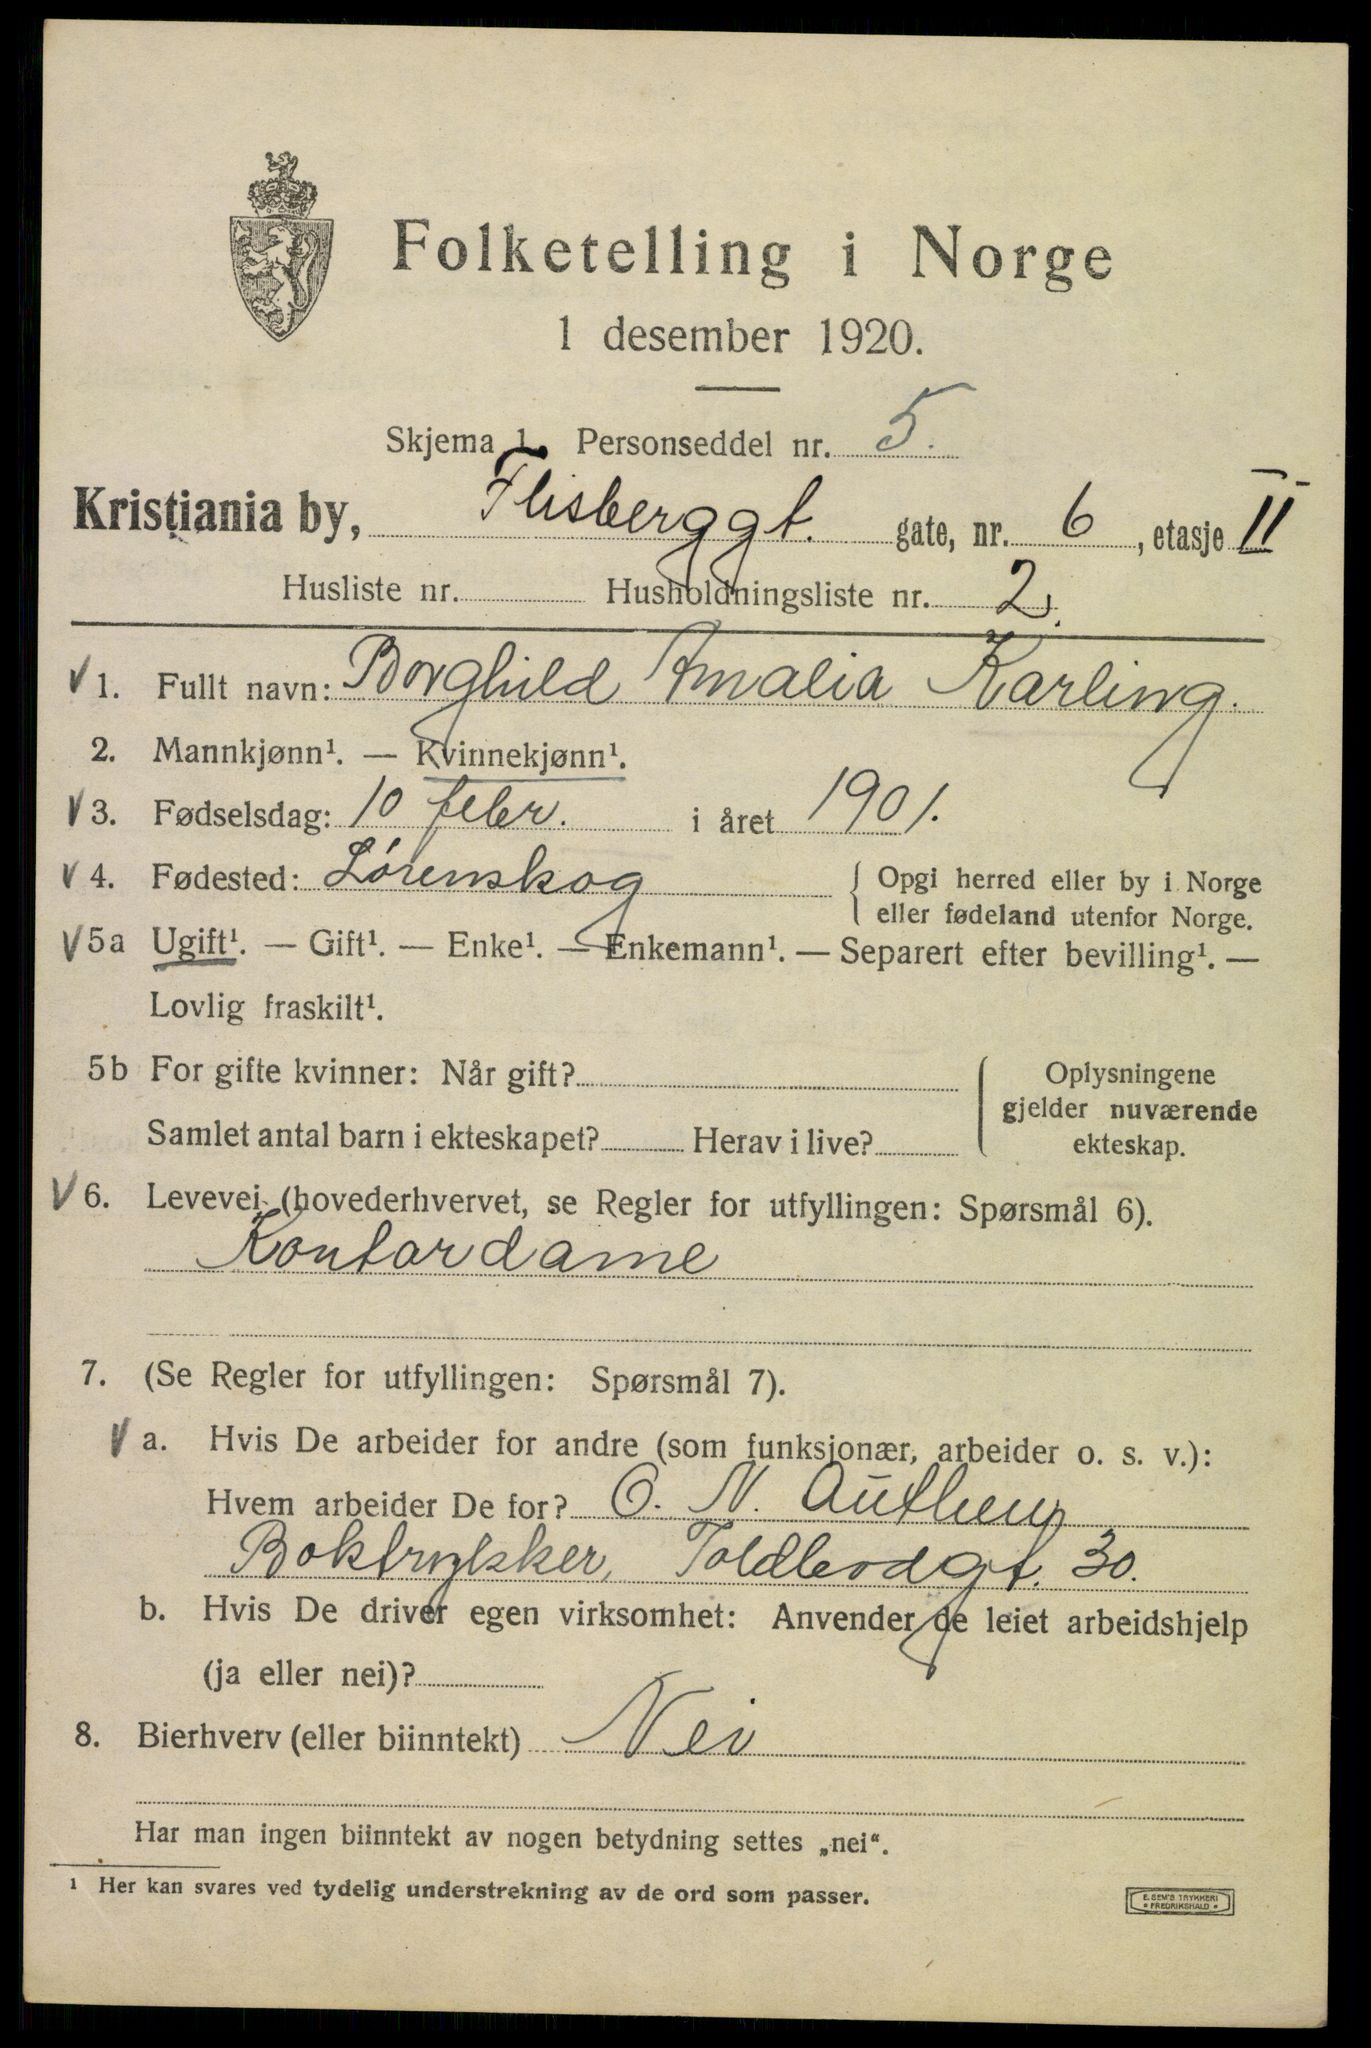 Folketelling i Norge
1 desember 1920.
Skjema 1. Personseddel nr. 5.
Kristiania by, Flisberggt. gate, nr. 6, etasje II
Husliste nr. Husholdningsliste nr. 2.
1. Fullt navn: Borghild Amalia Karling.
2. Mannkjønn¹. — Kvinnekjønn¹.
3. Fødselsdag: 10 febr. i året 1901.
4. Fødested: Lørenskog { Opgi herred eller by i Norge
eller fødeland utenfor Norge.
5a Ugift¹. — Gift¹. — Enke¹. — Enkemann¹. — Separert efter bevilling¹. —
Lovlig fraskilt¹.
5b For gifte kvinner: Når gift? { Oplysningene
gjelder nuværende
Samlet antal barn i ekteskapet? Herav i live? ekteskap.
6. Levevei (hovederhvervet, se Regler for utfyllingen: Spørsmål 6).
Kontordame
7. (Se Regler for utfyllingen: Spørsmål 7).
a. Hvis De arbeider for andre (som funksjonær, arbeider o. s. v.):
Hvem arbeider De for? O. N. Authen
Boktrykker, Toldbodgt. 30.
b. Hvis De driver egen virksomhet: Anvender de leiet arbeidshjelp
(ja eller nei)?
8. Bierhverv (eller biinntekt) Nei
Har man ingen biinntekt av nogen betydning settes „nei“.
¹ Her kan svares ved tydelig understrekning av de ord som passer.
E. SEM'S TRYKKERI
* FREDRIKSHALD *